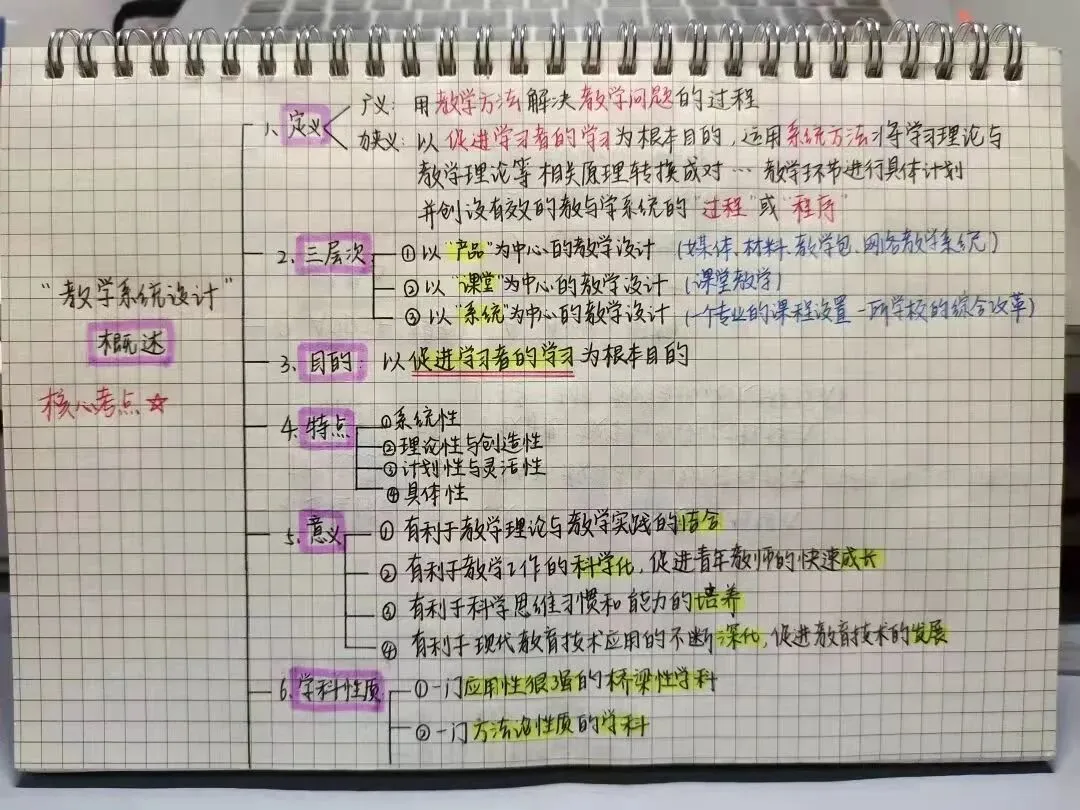 "教学系统设计"
概述
核心考点☆
1、定义
广义：用教学方法解决教学问题的过程
狭义：以促进学习者的学习为根本目的，运用系统方法将学习理论与
教学理论等相关原理转换成对…教学环节进行具体计划
并创设有效的教与学系统的"过程"或"程序"
2、三层次
①以"产品"为中心的教学设计（媒体、材料、教学包、网络教学系统）
②以"课堂"为中心的教学设计（课堂教学）
③以"系统"为中心的教学设计（一个专业的课程设置 一所学校的综合改革）
3、目的：以促进学习者的学习为根本目的
4、特点
①系统性
②理论性与创造性
③计划性与灵活性
④具体性
5、意义
①有利于教学理论与教学实践的结合
②有利于教学工作的科学化，促进青年教师的快速成长
③有利于科学思维习惯和能力的培养
④有利于现代教育技术应用的不断深化，促进教育技术的发展
6、学科性质
①一门应用性很强的桥梁性学科
②一门方法论性质的学科